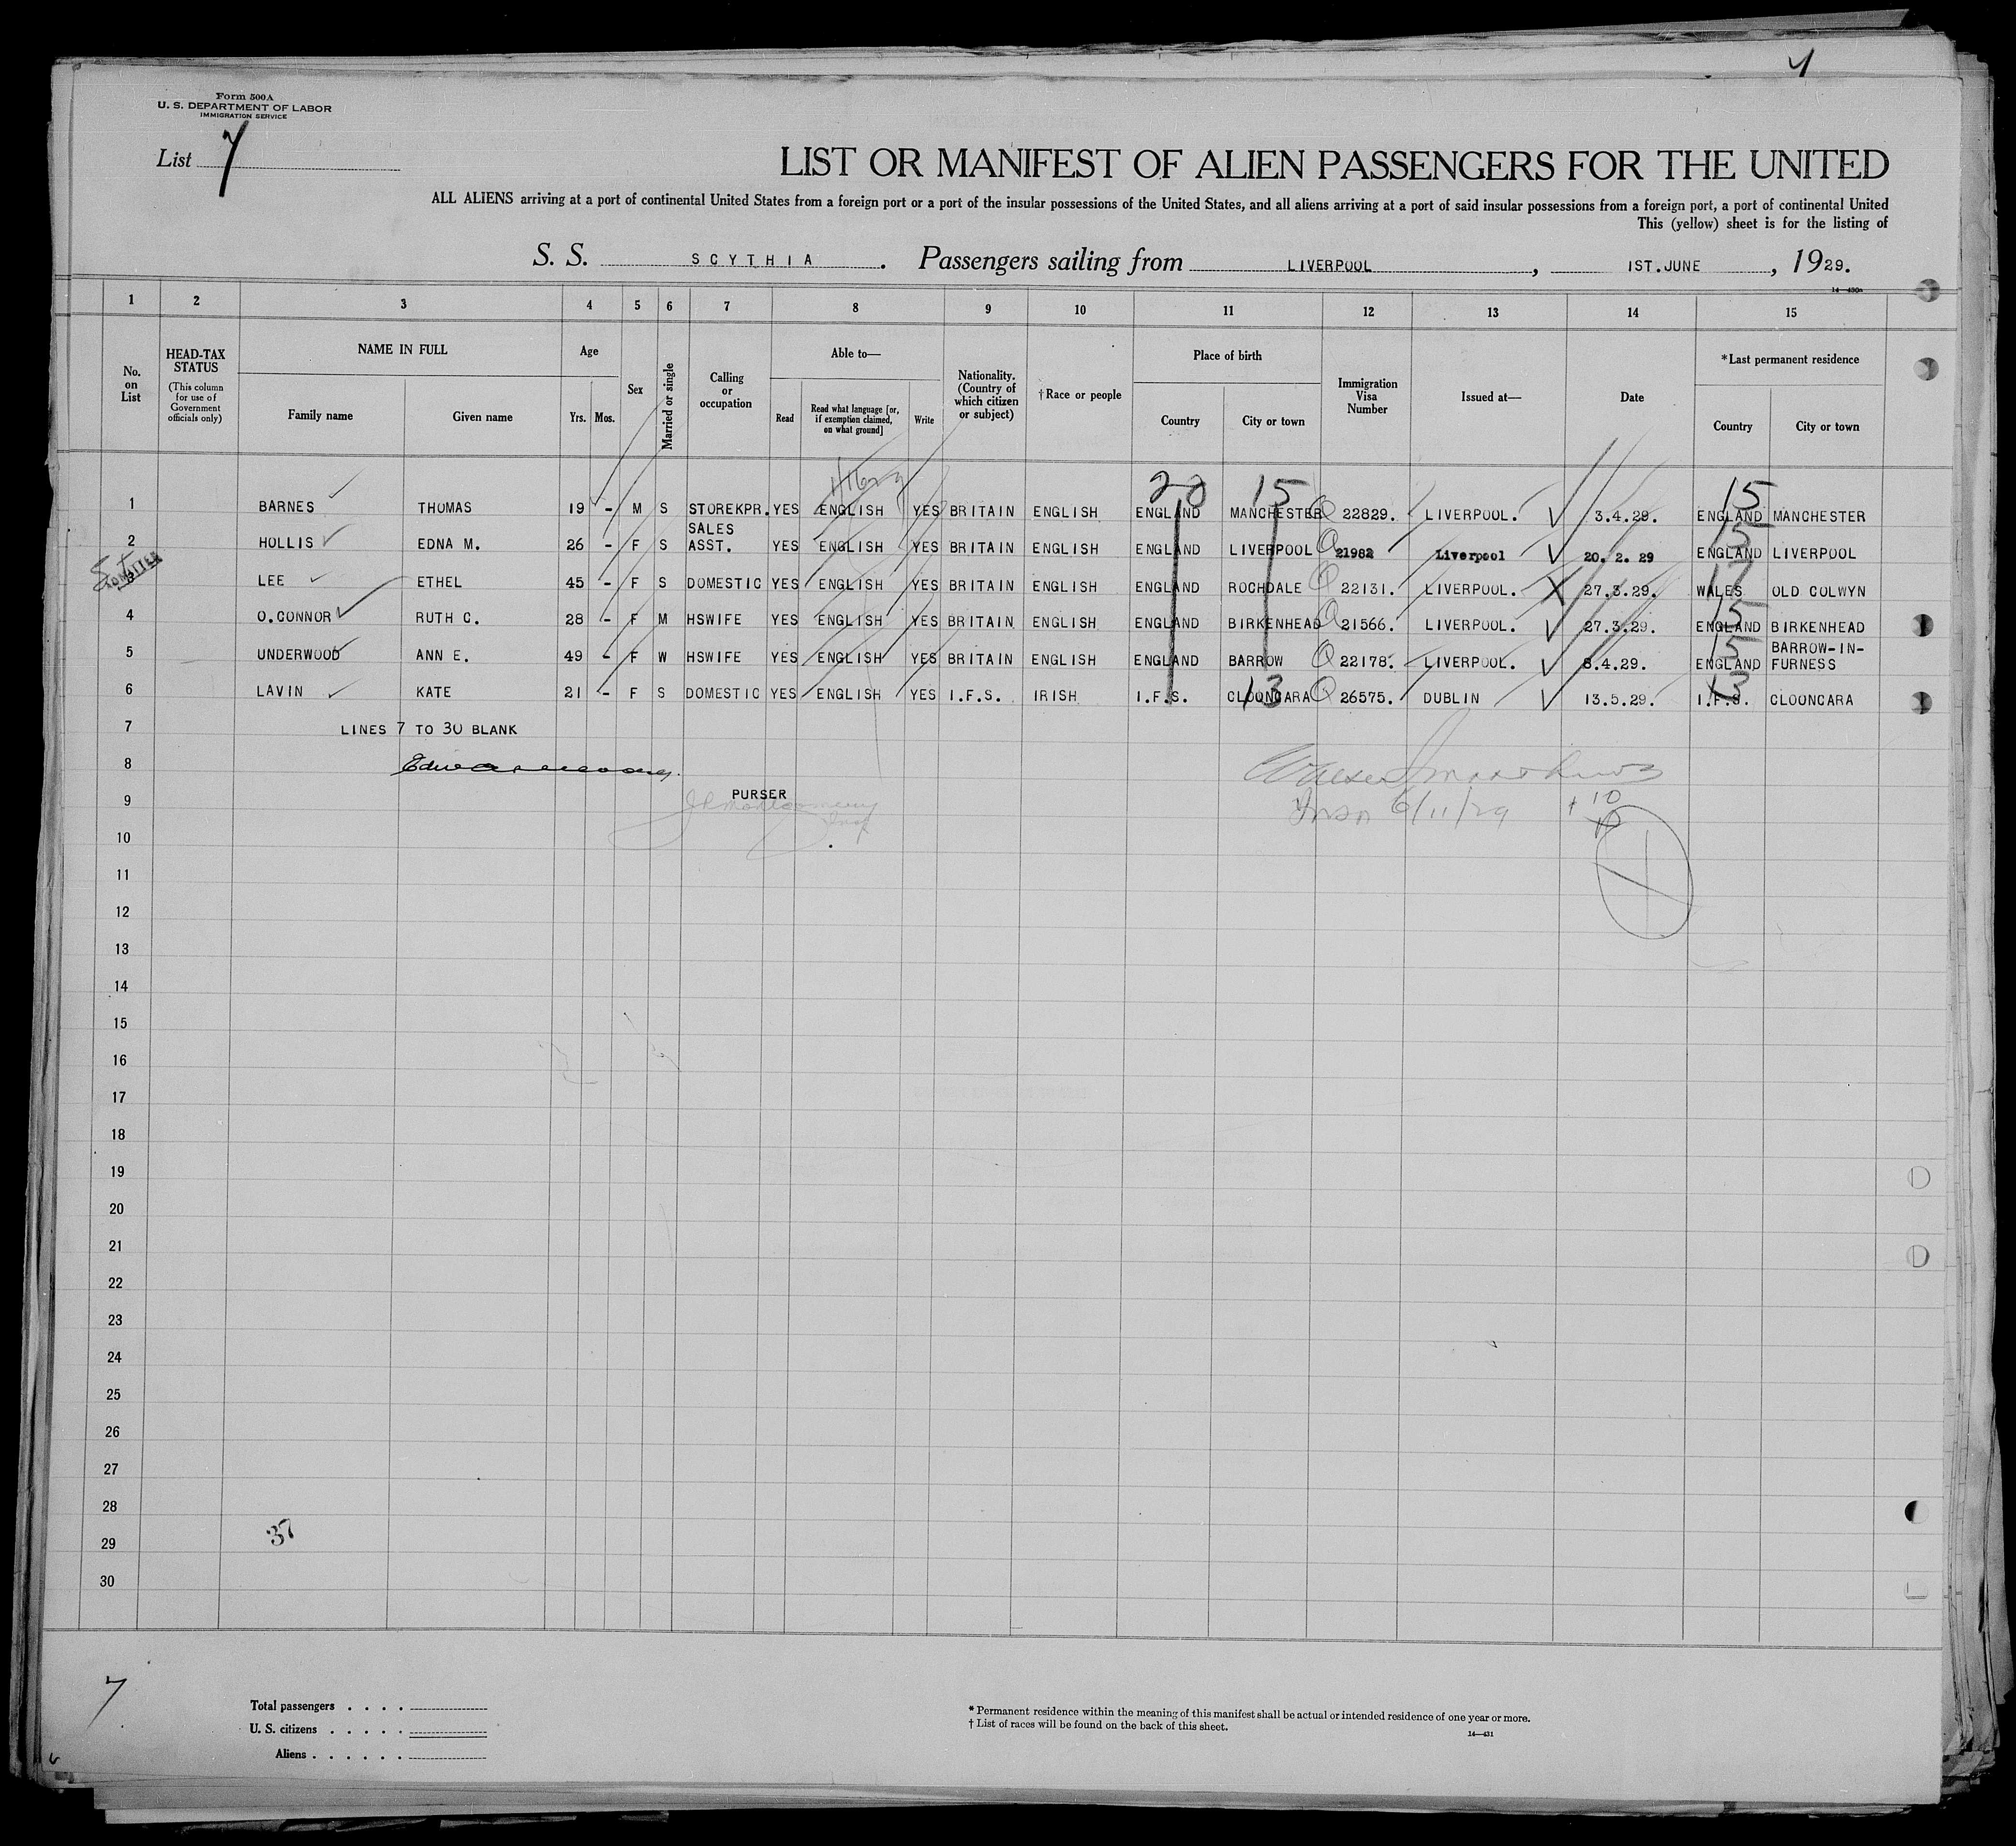 4
Form 500A
U. S. DEPARTMENT OF LABOR
IMMIGRATION SERVICE
List 7
LIST OR MANIFEST OF ALIEN PASSENGERS FOR THE UNITED
ALL ALIENS arriving at a port of continental United States from a foreign port or a port of the insular possessions of the United States, and all aliens arriving at a port of said insular possessions from a foreign port, a port of continental United
This (yellow) sheet is for the listing of
S. S. SCYTHIA. Passengers sailing from LIVERPOOL, 1ST.JUNE, 1929.
14—430a
1 2 3 4 5 6 7 8 9 10 11 12 13 14 15
No. on List HEAD-TAX STATUS (This column for use of Government officials only) NAME IN FULL Family name Given name Age Yrs. Mos. Sex Married or single Calling or occupation Able to— Read Read what language [or, if exemption claimed, on what ground] Write Nationality. (Country of which citizen or subject) †Race or people Place of birth Country City or town Immigration Visa Number Issued at— Date *Last permanent residence Country City or town
20 15 15
1 BARNES THOMAS 19 - M S STOREKPR. YES ENGLISH YES BRITAIN ENGLISH ENGLAND MANCHESTER Q 22829. LIVERPOOL. 3.4.29. ENGLAND MANCHESTER
15
2 HOLLIS EDNA M. 26 - F S SALES ASST. YES ENGLISH YES BRITAIN ENGLISH ENGLAND LIVERPOOL Q 21982 Liverpool 20. 2. 29 ENGLAND LIVERPOOL
3 LEE ETHEL 45 - F S DOMESTIC YES ENGLISH YES BRITAIN ENGLISH ENGLAND ROCHDALE Q 22131. LIVERPOOL. X 27.3.29. WALES OLD COLWYN
15
4 O.CONNOR RUTH C. 28 - F M HSWIFE YES ENGLISH YES BRITAIN ENGLISH ENGLAND BIRKENHEAD Q 21566. LIVERPOOL. 27.3.29. ENGLAND BIRKENHEAD
15
5 UNDERWOOD ANN E. 49 - F W HSWIFE YES ENGLISH YES BRITAIN ENGLISH ENGLAND BARROW Q 22178. LIVERPOOL. 8.4.29. ENGLAND BARROW-IN-FURNESS
13 13
6 LAVIN KATE 21 - F S DOMESTIC YES ENGLISH YES I.F.S. IRISH I.F.S. CLOONCARA Q 26575. DUBLIN 13.5.29. I.F.S. CLOONCARA
7 LINES 7 TO 30 BLANK
8
9 PURSER
6/11/29 + 10
10
10
11
12
13
14
15
16
17
18
19
20
21
22
23
24
25
26
27
28
37
29
30
7
Total passengers . . . .
U. S. citizens . . . . .
Aliens . . . . . .
* Permanent residence within the meaning of this manifest shall be actual or intended residence of one year or more.
† List of races will be found on the back of this sheet.
14—431